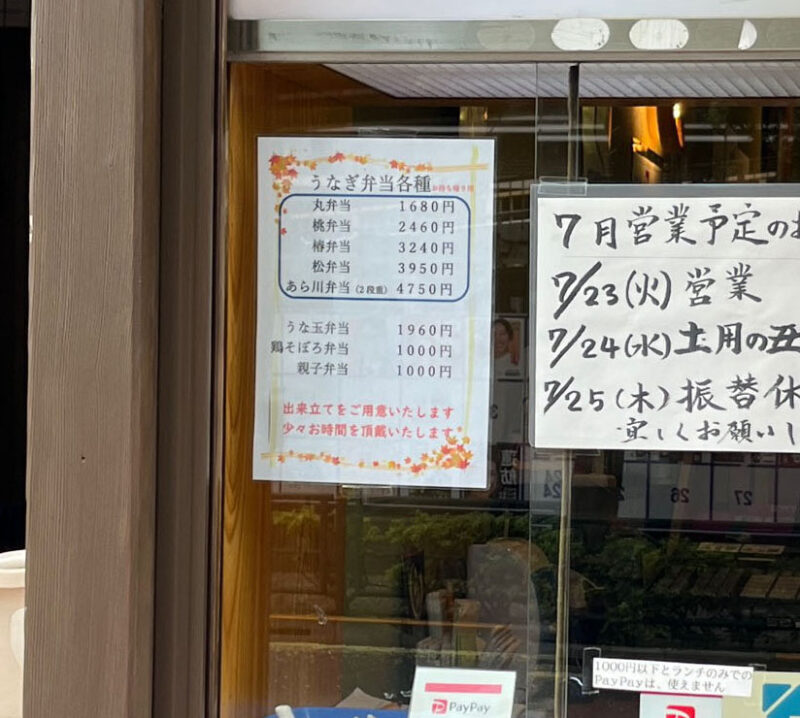 うなぎ弁当各種お持ち帰り用
丸弁当 1680円
桃弁当 2460円
椿弁当 3240円
松弁当 3950円
あら川弁当(2段重) 4750円
うな玉弁当 1960円
鶏そぼろ弁当 1000円
親子弁当 1000円
出来立てをご用意いたします
少々お時間を頂戴いたします
7月営業予定のお
7/23(火)営業
7/24(水)土用の丑
7/25(木)振替休
宜しくお願いし
24
26
27
1000円以下とランチのみでの
PayPayは、使えません
PayPay